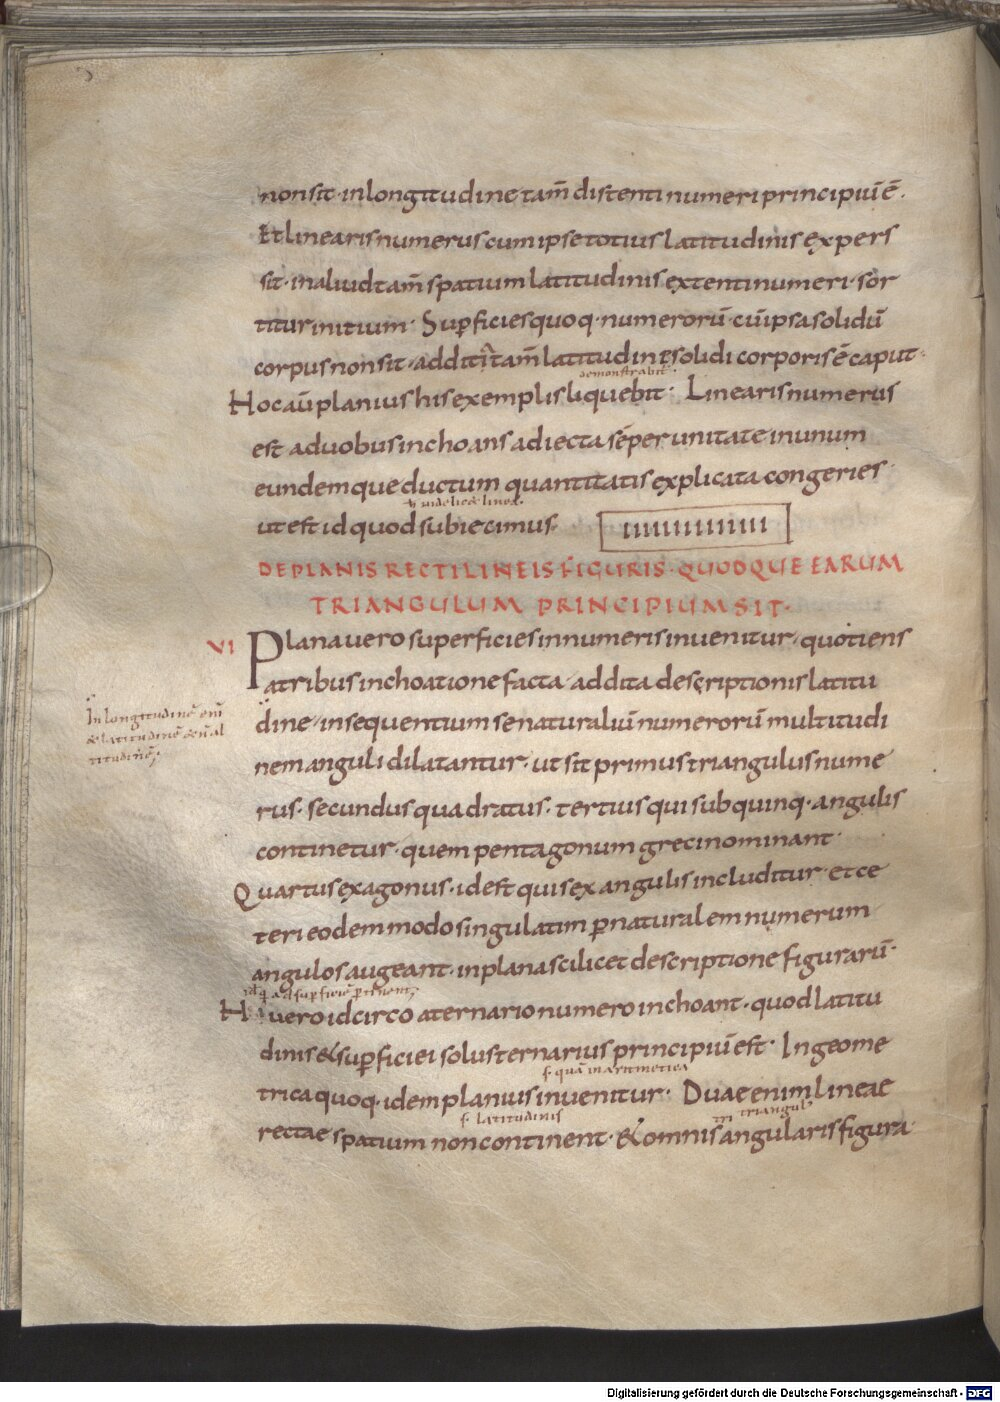 non sit· in longitudine tam̄ distenti numeri principiū ē·
Et linearis numerus cum ipse totius latitudinis expers
sit· in aliud tam̄ spatium latitudinis extenti numeri· sor
titur initium· Sup̄ficies quoq· numerorū· cū ipsa solidū
corpus non sit· additi tam̄ latitudini solidi corporis ē caput·
demonstrabit·
Hoc aū planius his exemplis liquebit· Linearis numerus
est a duobus inchoans adiecta sēper unitate in unum
eundemque ductum quantitatis explicata congeries·
linea·
ut est id quod subiecimus· ııııııııııı
DE PLANIS RECTILINEIS FIGURIS· QUODQUE EARUM
TRIANGULUM PRINCIPIUM SIT·
VI Plana uero superficies in numeris inuenitur· quotiens
a tribus inchoatione facta· addita descriptionis latitu
In longitudinē enī
dine· in sequentium se naturaliū numerorū multitudi
& latitudinē & n̄ al
titudinē·
nem anguli dilatantur· ut sit primus triangulus nume
rus· secundus quadratus· tertius qui sub quinq· angulis
continetur· quem pentagonum greci nominant·
Quartus exagonus· id est qui sex angulis includitur· et ce
teri eodem modo singulatim p̄ naturalem numerum
angulos augeant· in plana scilicet descriptione figurarū·
ad sup̄ficiē p̄tinent
Hi uero idcirco a ternario numero inchoant· quod latitu
dinis & sup̄ficiei solus ternarius principiū est· In geome
s· quā in aritmetica
trica quoq· idem planius inuenitur· Duae enim lineae
s· latitudinis triangul
rectae spatium non continent· & omnis angularis figura
Digitalisierung gefördert durch die Deutsche Forschungsgemeinschaft - DFG